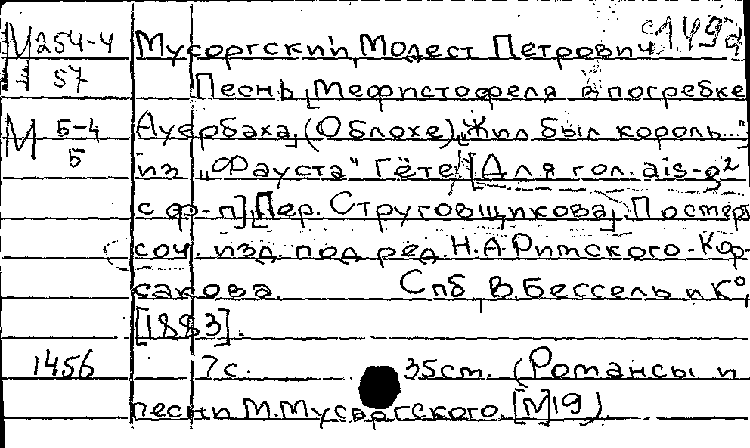 М 254-4 Мусоргский, Модест Петрович 
57 Песнь Мефистофеля в погребке
М Б-4 Ауербаха, (О блохе) „Жил был король..."
Б из „Фауста" Гёте. [Для гол. ais-g²
с ф-п] Пер. Струговщикова. Посмерт
соч. изд. под ред. Н.А. Римского-Кор-
сакова. Спб, В. Бессель и К°,
[1883].
1456 7 с. 35 см. (Романсы и
песни М. Мусоргского. [№]19).